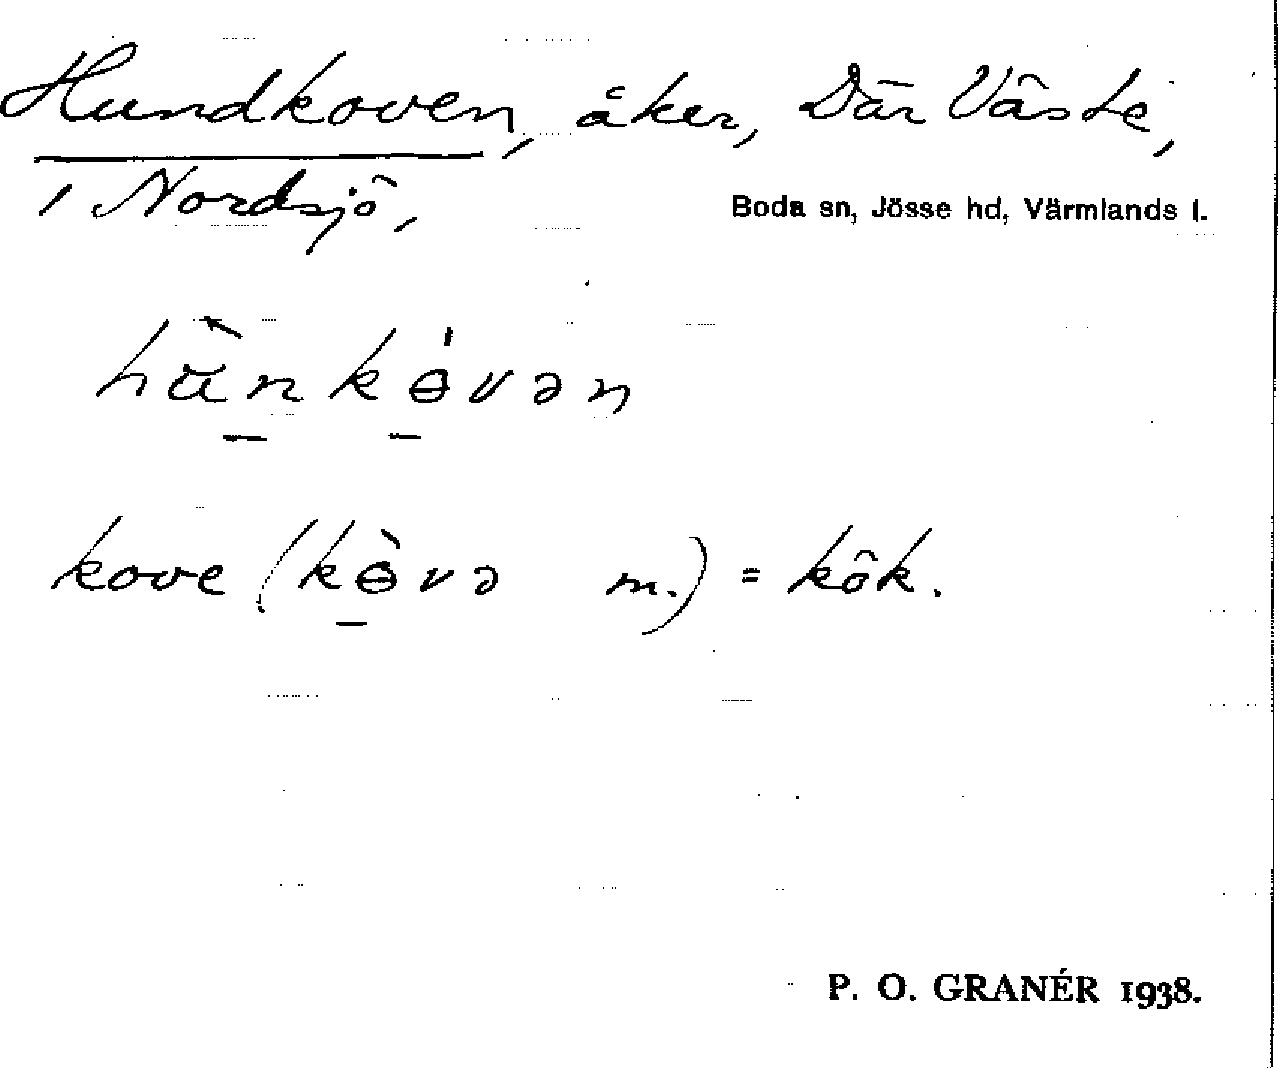 Hundkoven, åker, Där Väste,
i Nordsjö,
Boda sn, Jösse hd, Värmlands l.
hùnkɵ́vən
kove (kɵ̀və m.) = kök.
P. O. GRANÉR 1938.